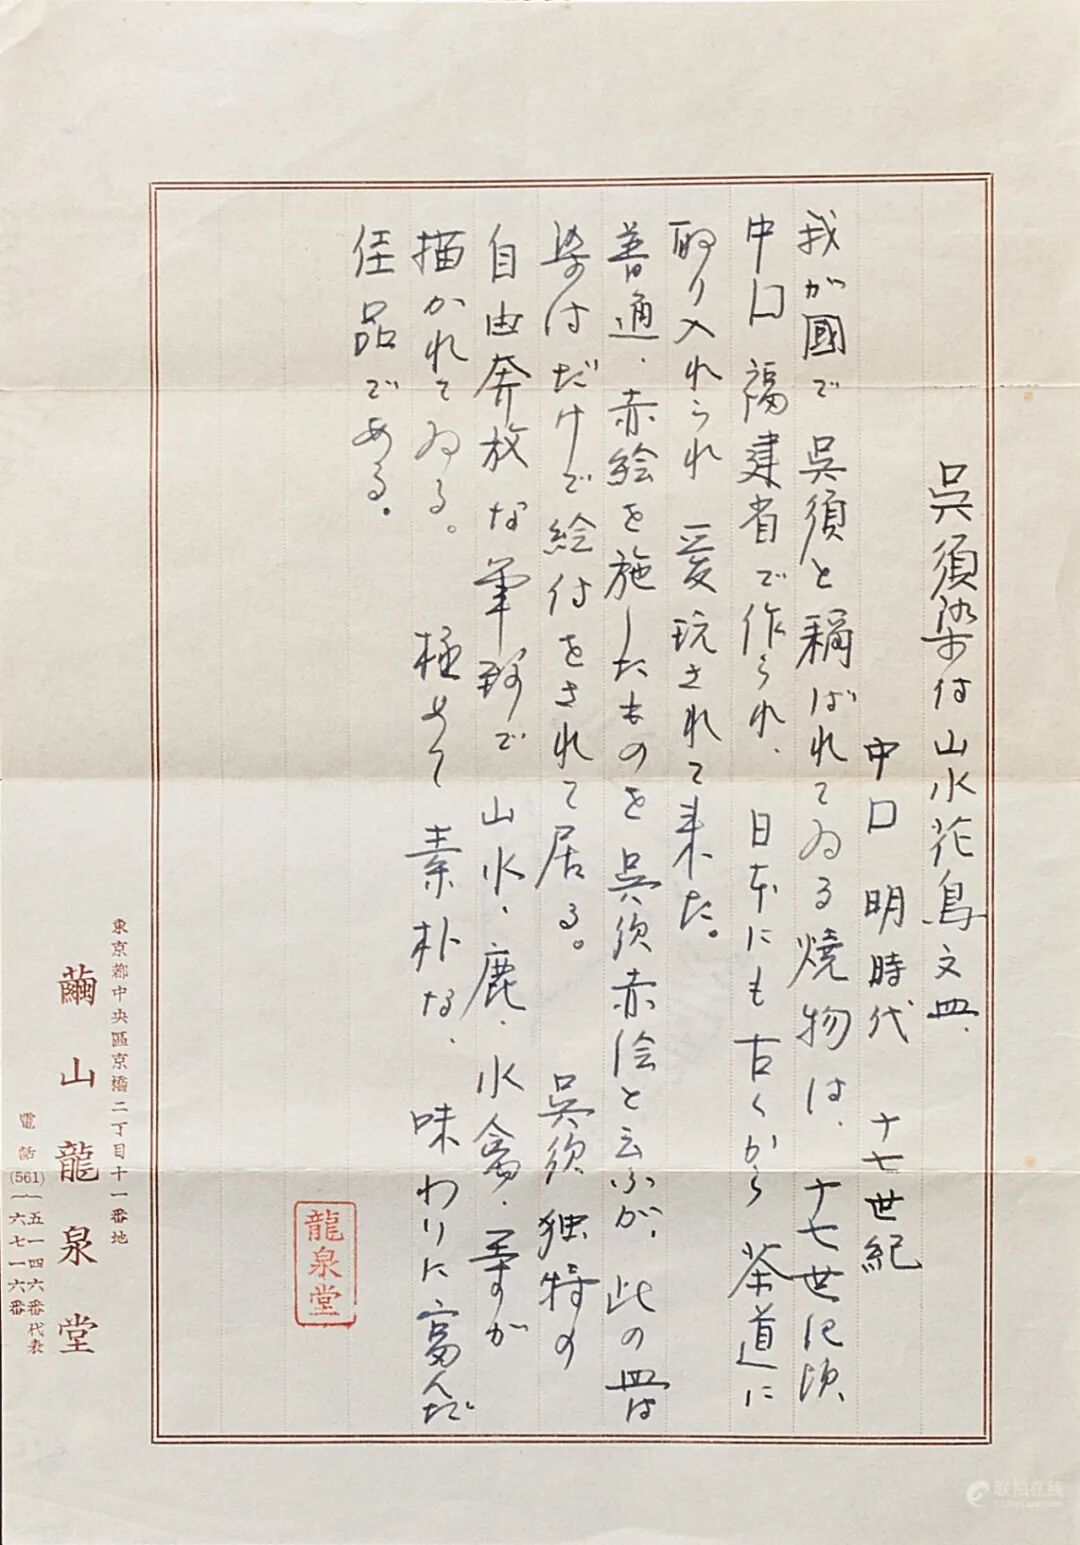 呉須染付山水花鳥文皿.
中口 明時代 十七世紀
我が國で呉須と稱ばれてゐる焼物は、十七世紀頃
中口福建省で作られ、日本にも古くから茶道に
取り入れられ愛玩されて来た。
普通、赤絵を施したものを呉須赤絵と云ふが、此の皿は
染付だけで絵付をされて居る。呉須独特の
自由奔放な筆致で山水、鹿、水禽、等が
描かれてゐる。極めて素朴な、味わいに富んだ
佳品である。
龍泉堂
東京都中央區京橋二丁目十一番地
繭山龍泉堂
電話(561)五一四六番代表
六七一六番
联拍在线